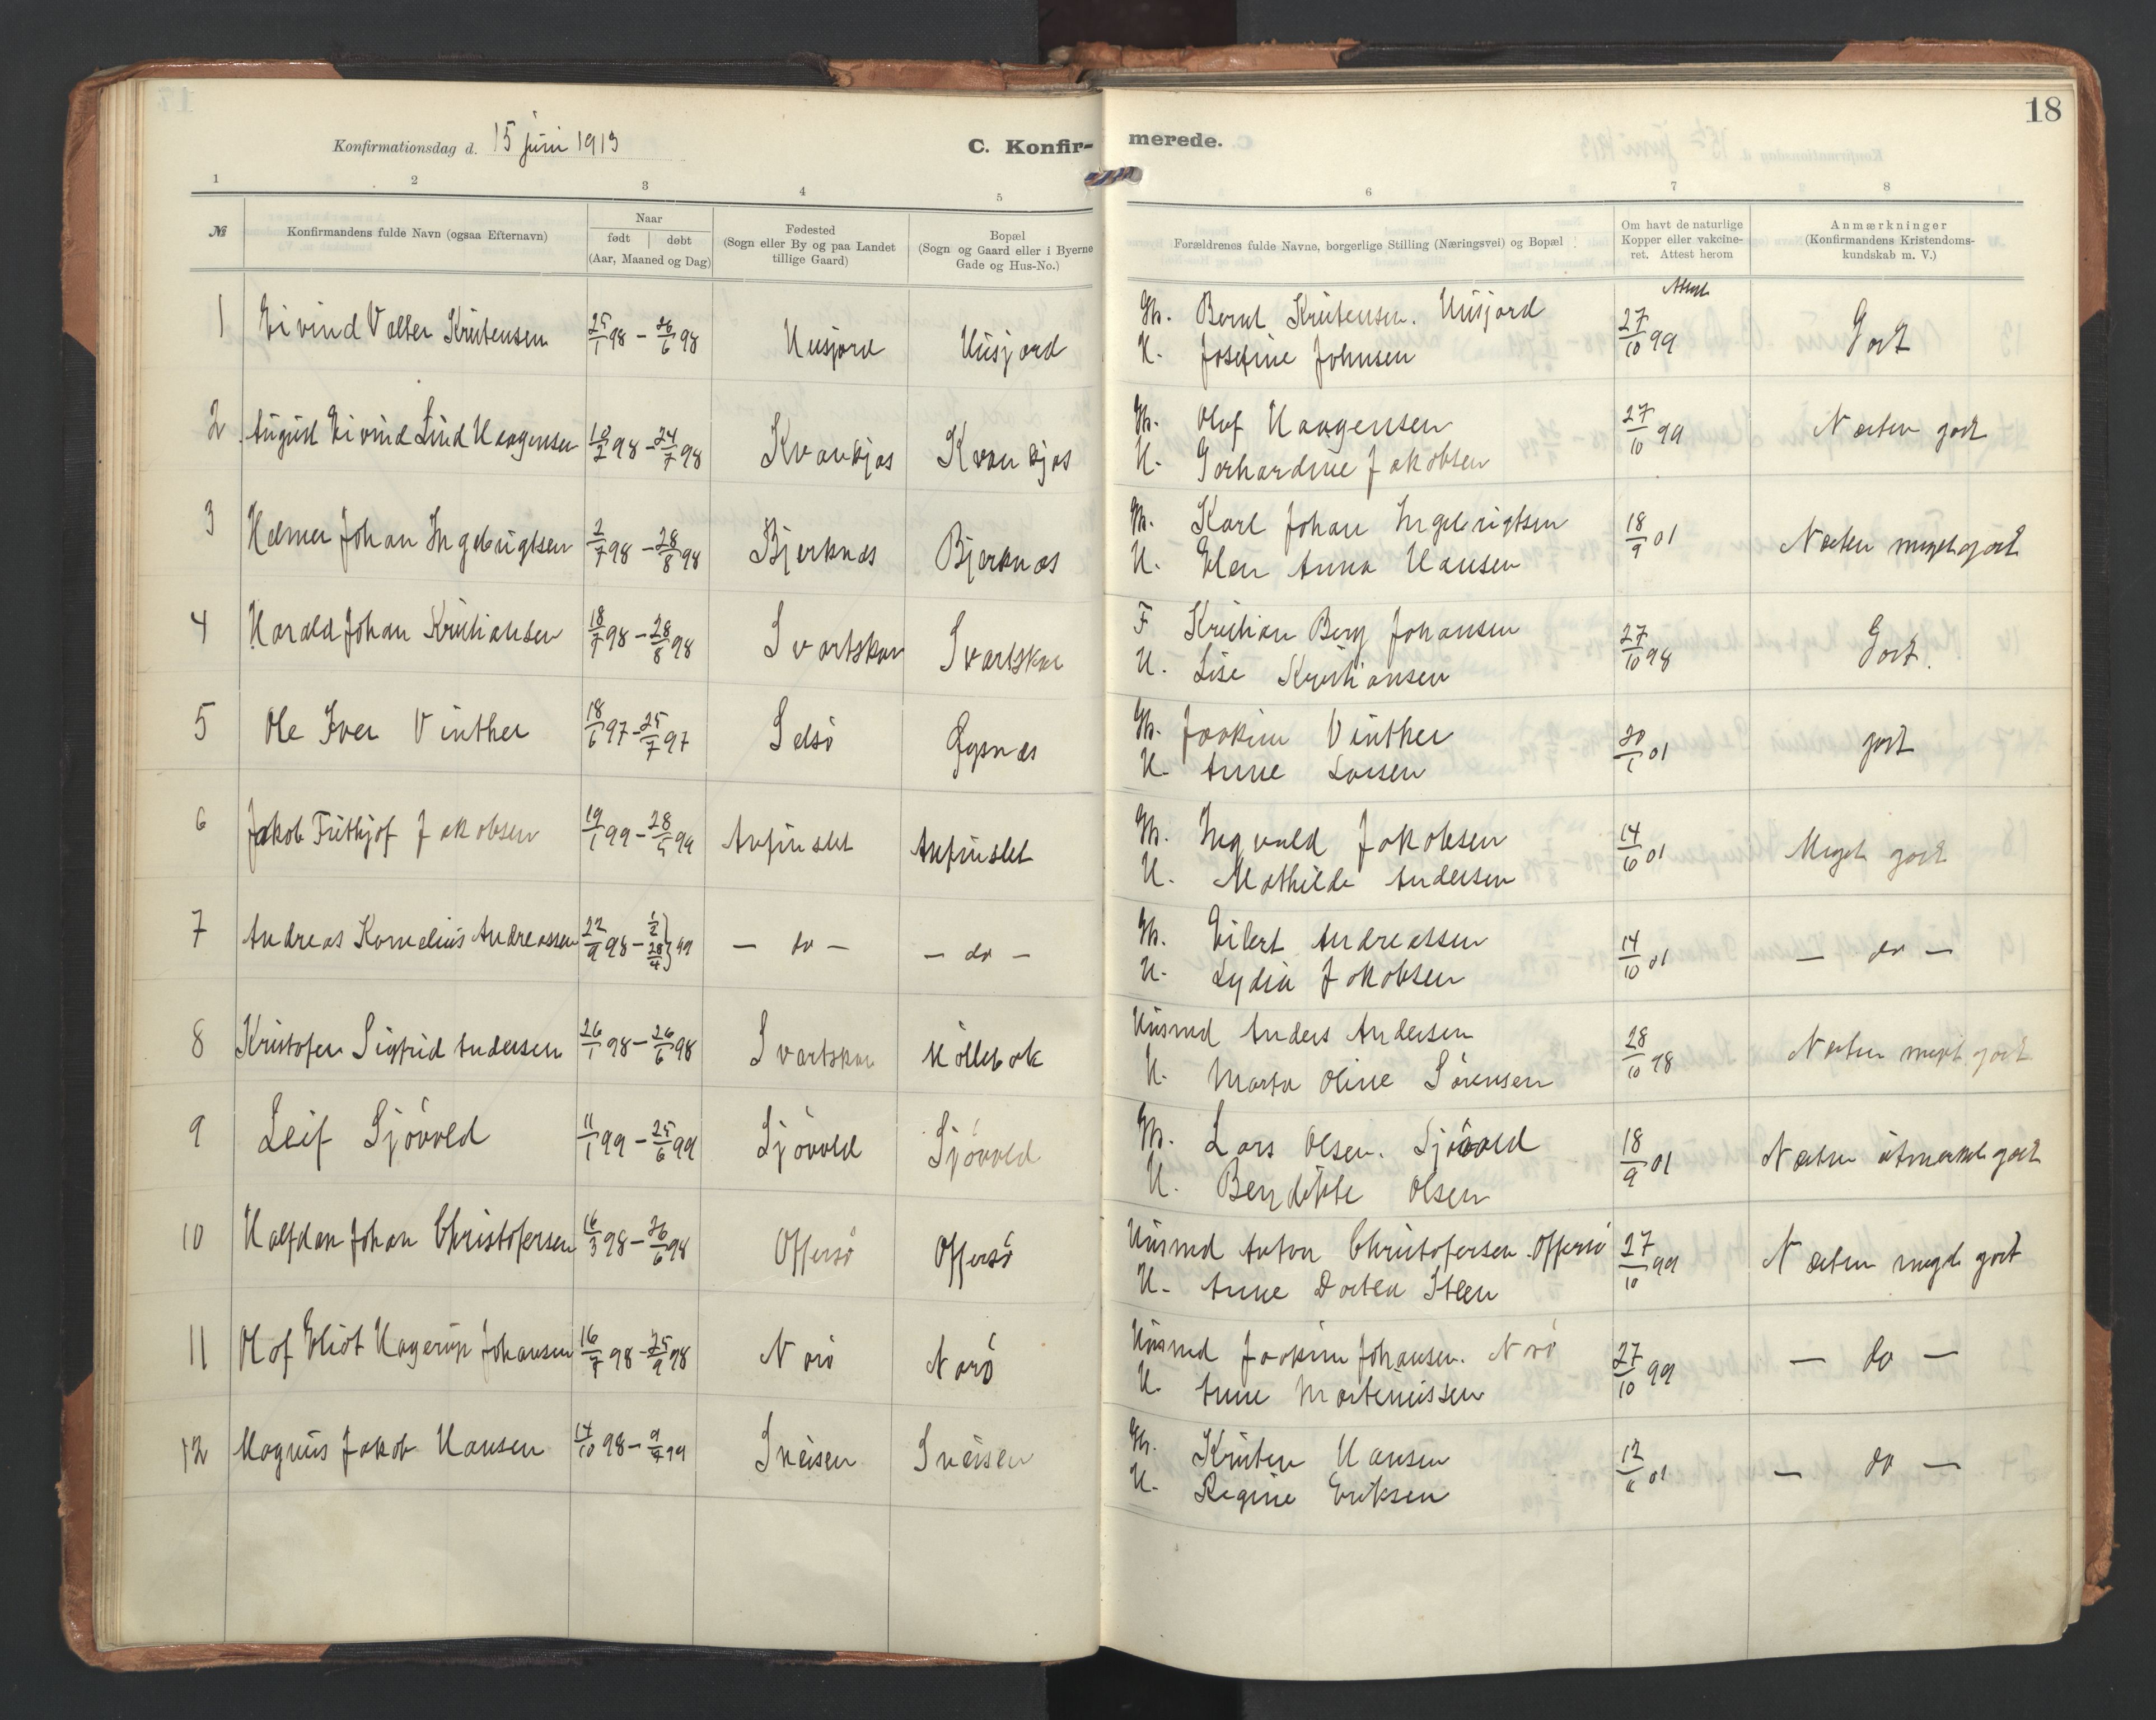 18
Konfirmationsdag d. 15 juni 1913
C. Konfir-
merede.
1 2 3 4 5 6 7 8
№
Konfirmandens fulde Navn (ogsaa Efternavn)
Naar
født | døbt
(Aar, Maaned og Dag)
Fødested
(Sogn eller By og paa Landet
tillige Gaard)
Bopæl
(Sogn og Gaard eller i Byerne
Gade og Hus-No.)
Forældrenes fulde Navne, borgerlige Stilling (Næringsvei) og Bopæl
Om havt de naturlige
Kopper eller vakcine-
ret. Attest herom
Anmærkninger
(Konfirmandens Kristendoms-
kundskab m. V.)
Attest
1 Eivind Valter Kristensen 25/1 98 – 26/6 98 Husjord Husjord
Gb. Bernt Kristensen. Husjord
H. Josefine Johnsen
27/10 99 Godt
2 August Eivind Lind Haagensen 98 – 24/7 98 Kvankjos Kvankjos
Gb. Oluf Haagensen
H. Gerhardine Jakobsen
27/10 99 Næsten godt
3 Helmer Johan Ingebrigtsen 2/7 98 – 28/8 98 Bjerknæs Bjerknæs
Gb. Karl Johan Ingebrigtsen
H. Elen Anna Hansen
18/9 01 Næsten meget godt
4 Harald Johan Kristiansen 18/7 98 – 28/8 98 Svartskar Svartskar
F Kristian Berg Johansen
H. Lise Kristiansen
27/10 98 Godt.
5 Ole Iver Vinther 18/6 97 – 25/7 97 Selsö
Gb. Joakim Vinther
H. Anne Larsen
01 godt
6 Jakob Frithjof Jakobsen 19/1 99 – 28/5 99 Anfinslet Anfinslet
Gb. Ingvald Jakobsen
H. Mathilde Andersen
14/10 01 Meget godt
7 Andreas Kornelius Andreassen 22/9 98 – 1/2 28/4 } 99 – do – – do –
Gb. Eilert Andreassen
H. Lydia Jakobsen
14/10 01 – do –
8 Kristofer Sigfrid Andersen 26/1 98 – 26/6 98 Svartskar Möllebak
Husmd Anders Andersen
H. Marta Oline Sörensen
28/10 98 Næsten meget godt
9 Leif Sjövold 11/1 99 – 25/6 99 Sjövold Sjövold
Gb. Lars Olsen. Sjövold
H. Bendikte Olsen
18/9 01 Næsten utmerket godt
10 Halfdan Johan Christofersen 16/3 98 – 26/6 98 Offersö Offersö
Husmd Anton Christofersen. Offersö
H. Anne Dortea Steen
27/10 99 Næsten meget godt
11 Olof Eliot Hagerup Johansen 16/7 98 – 25/9 98 Narö Narö
Husmd Joakim Johansen. Narö
H. Anne Marteniussen
27/10 99 – do –
12 Magnus Jakob Hansen 14/10 98 – 9/4 99 Sneisen Sneisen
Gb. Kristen Hansen
H. Regine Eriksen
12/6 01 – do –